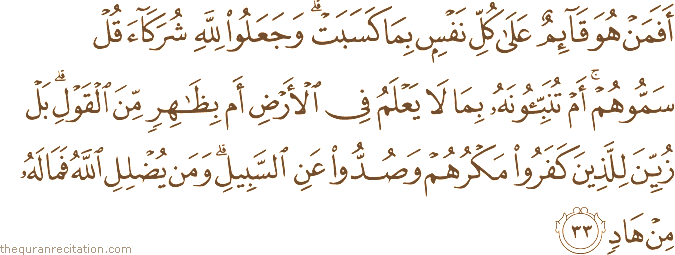 أَفَمَنْ هُوَ قَآئِمٌ عَلَىٰ كُلِّ نَفْسٍۭ بِمَا كَسَبَتْ ۗ وَجَعَلُوا۟ لِلَّهِ شُرَكَآءَ قُلْ
سَمُّوهُمْ ۚ أَمْ تُنَبِّـُٔونَهُۥ بِمَا لَا يَعْلَمُ فِى ٱلْأَرْضِ أَم بِظَـٰهِرٍ مِّنَ ٱلْقَوْلِ ۗ بَلْ
زُيِّنَ لِلَّذِينَ كَفَرُوا۟ مَكْرُهُمْ وَصُدُّوا۟ عَنِ ٱلسَّبِيلِ ۗ وَمَن يُضْلِلِ ٱللَّهُ فَمَا لَهُۥ
مِنْ هَادٍ ٣٣
thequranrecitation.com